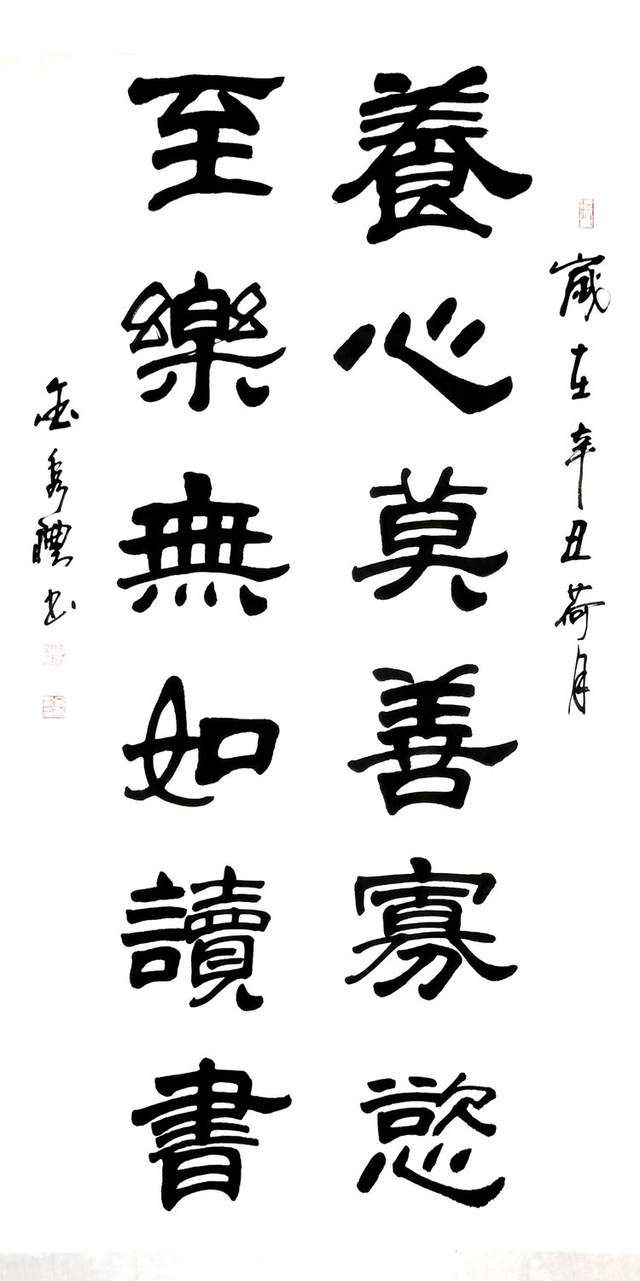 歲在辛丑荷月
養心莫善寡慾
至樂無如讀書
金秀體書